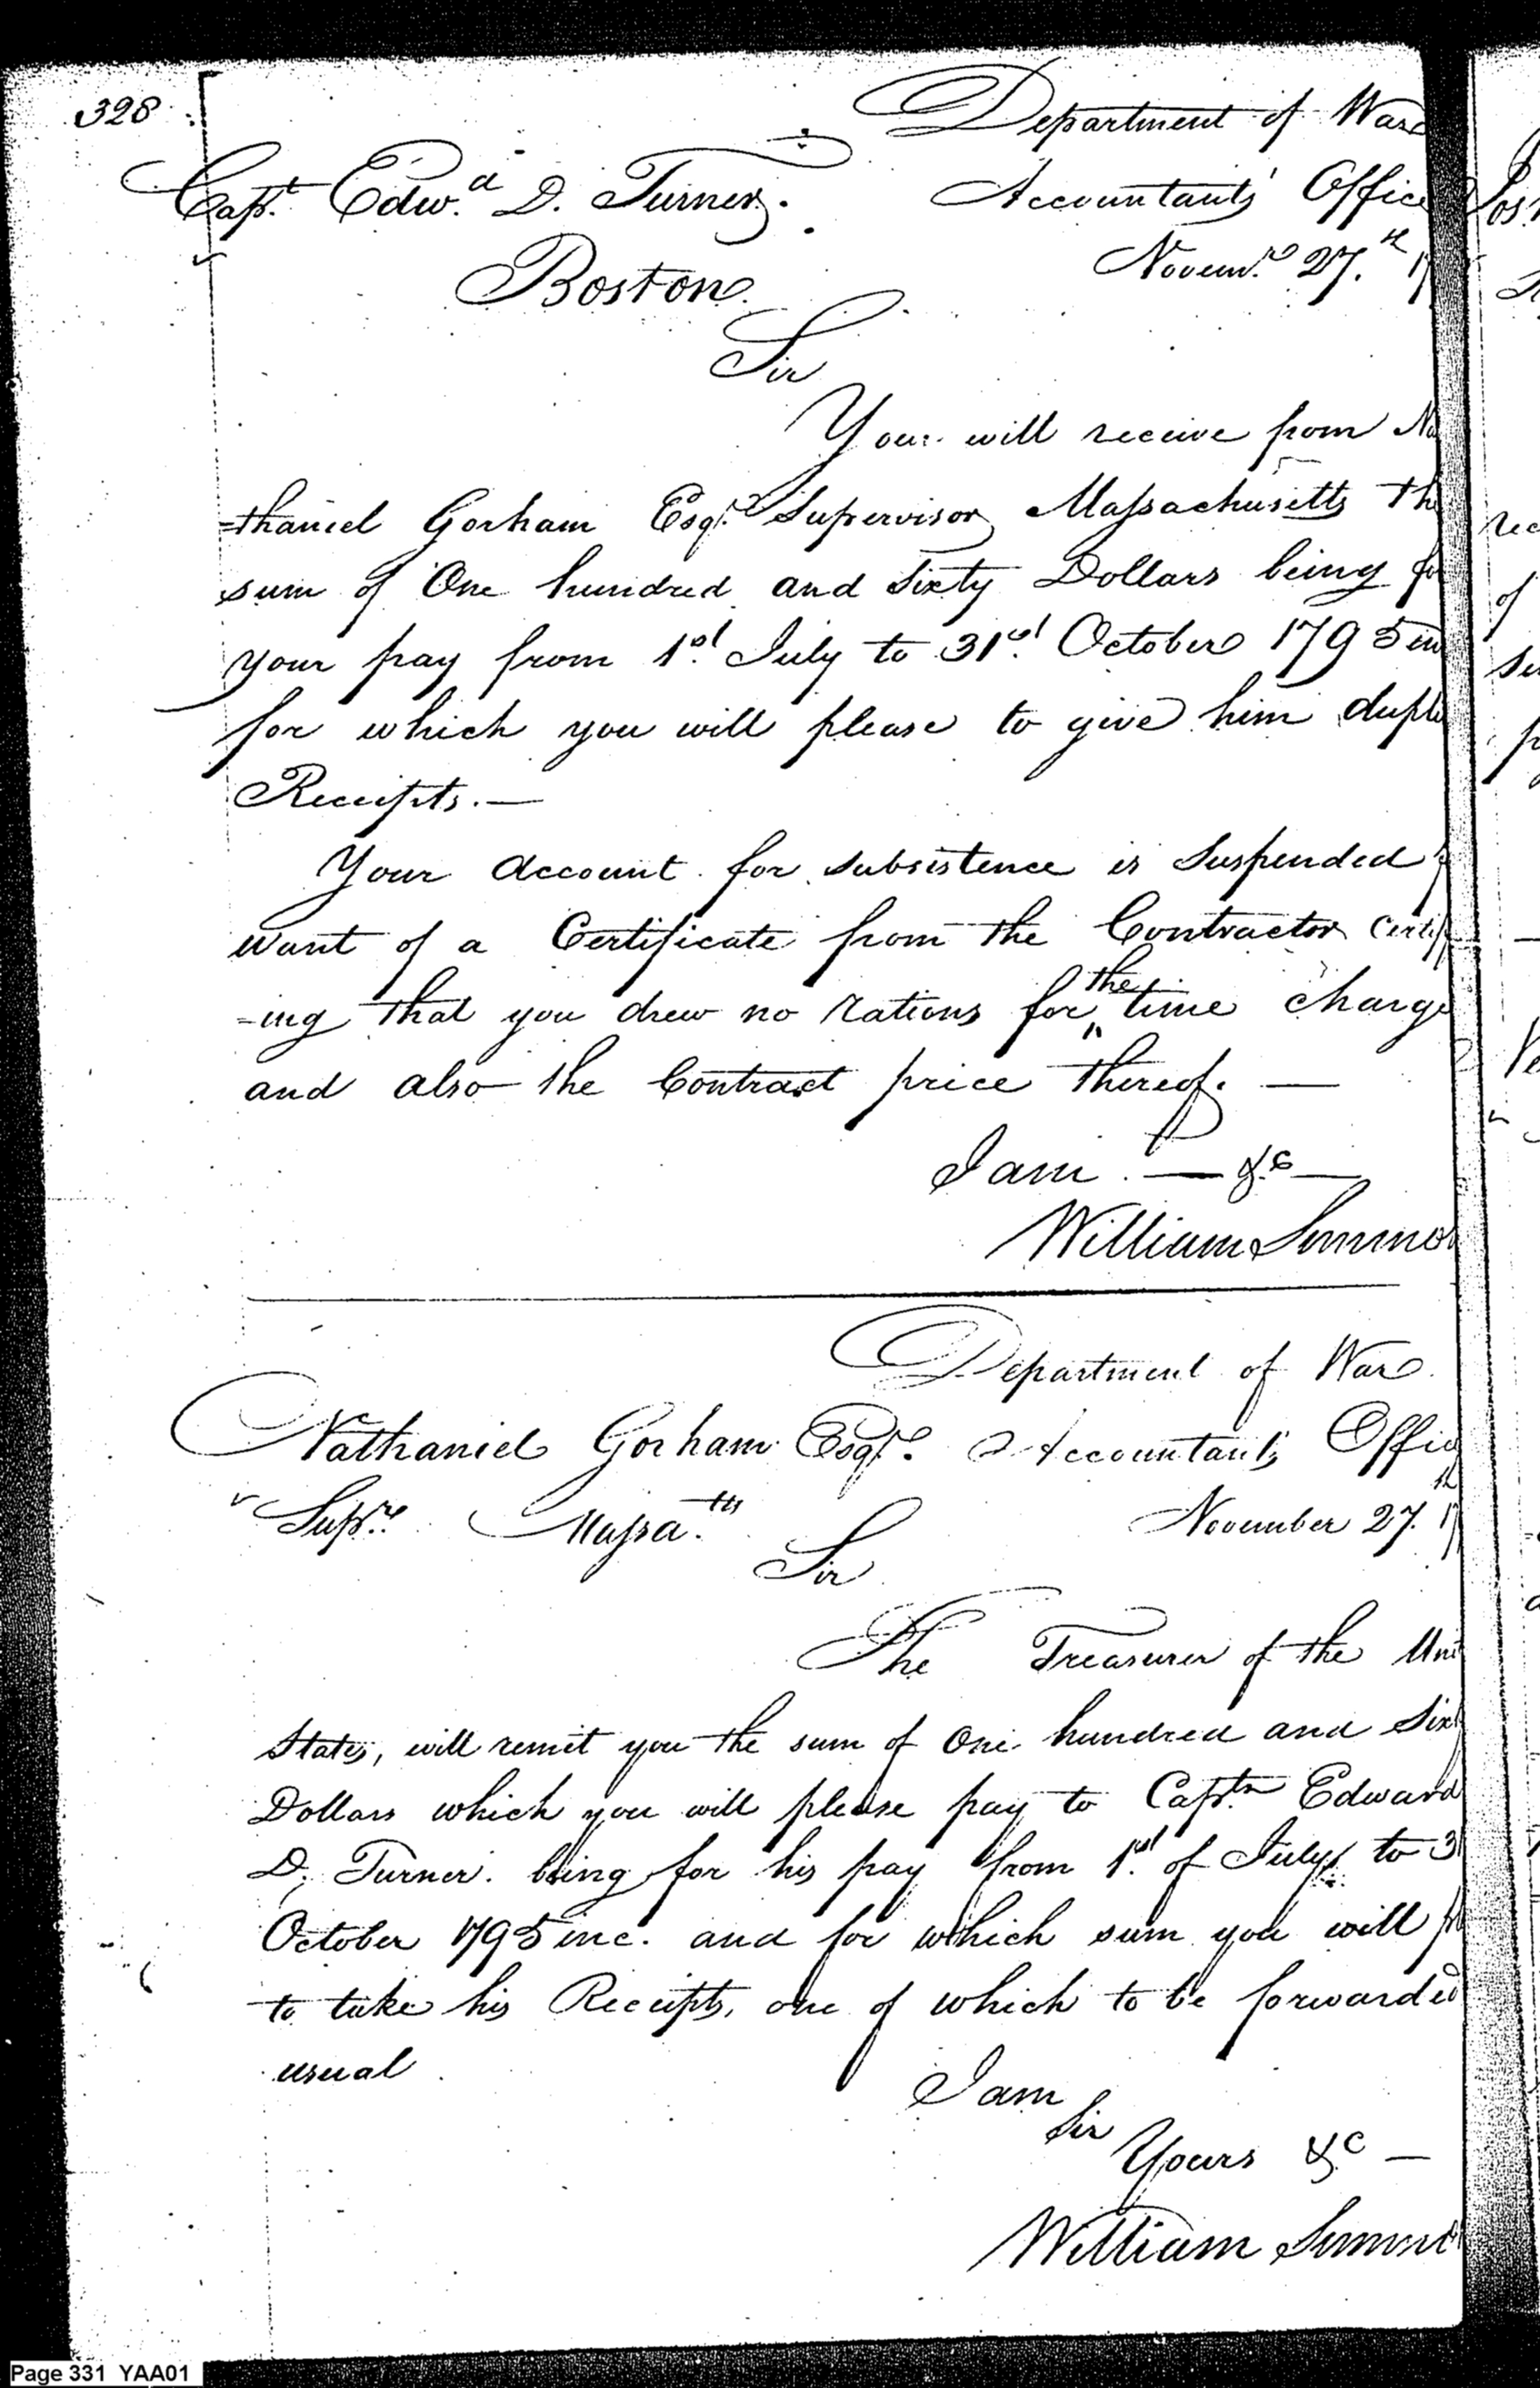 328
Department of War
Capt. Edwd. D. Turner. Accountants Office
Novemr. 27.th 17
Boston
Sir
You will receive from Na
=thaniel Gorham Esqr. Supervisor Massachusetts th
sum of One hundred and Sixty Dollars being fo
your pay from 1st. July to 31st. October 1795 in
for which you will please to give him dupli
Receipts.—
Your Account for subsistence is Suspended f
want of a Certificate from the Contractor Certif
=ing that you drew no rations for the time charge
and also the Contract price thereof. —
I am. — &c —
William Simmo
Department of War
Nathaniel Gorham Esqre. Accountants Offic
Supre. Massa.tts November 27.th 17
Sir
The Treasurer of the Unit
States, will remit you the sum of One hundred and Sixt
Dollars which you will please pay to Captn. Edward
D. Turner. being for his pay from 1st. of July to 3
October 1795 inc. and for which sum you will pl
to take his Receipts, one of which to be forwarded
usual
I am
Sir
Yours &c —
William Simmo
Page 331 YAA01